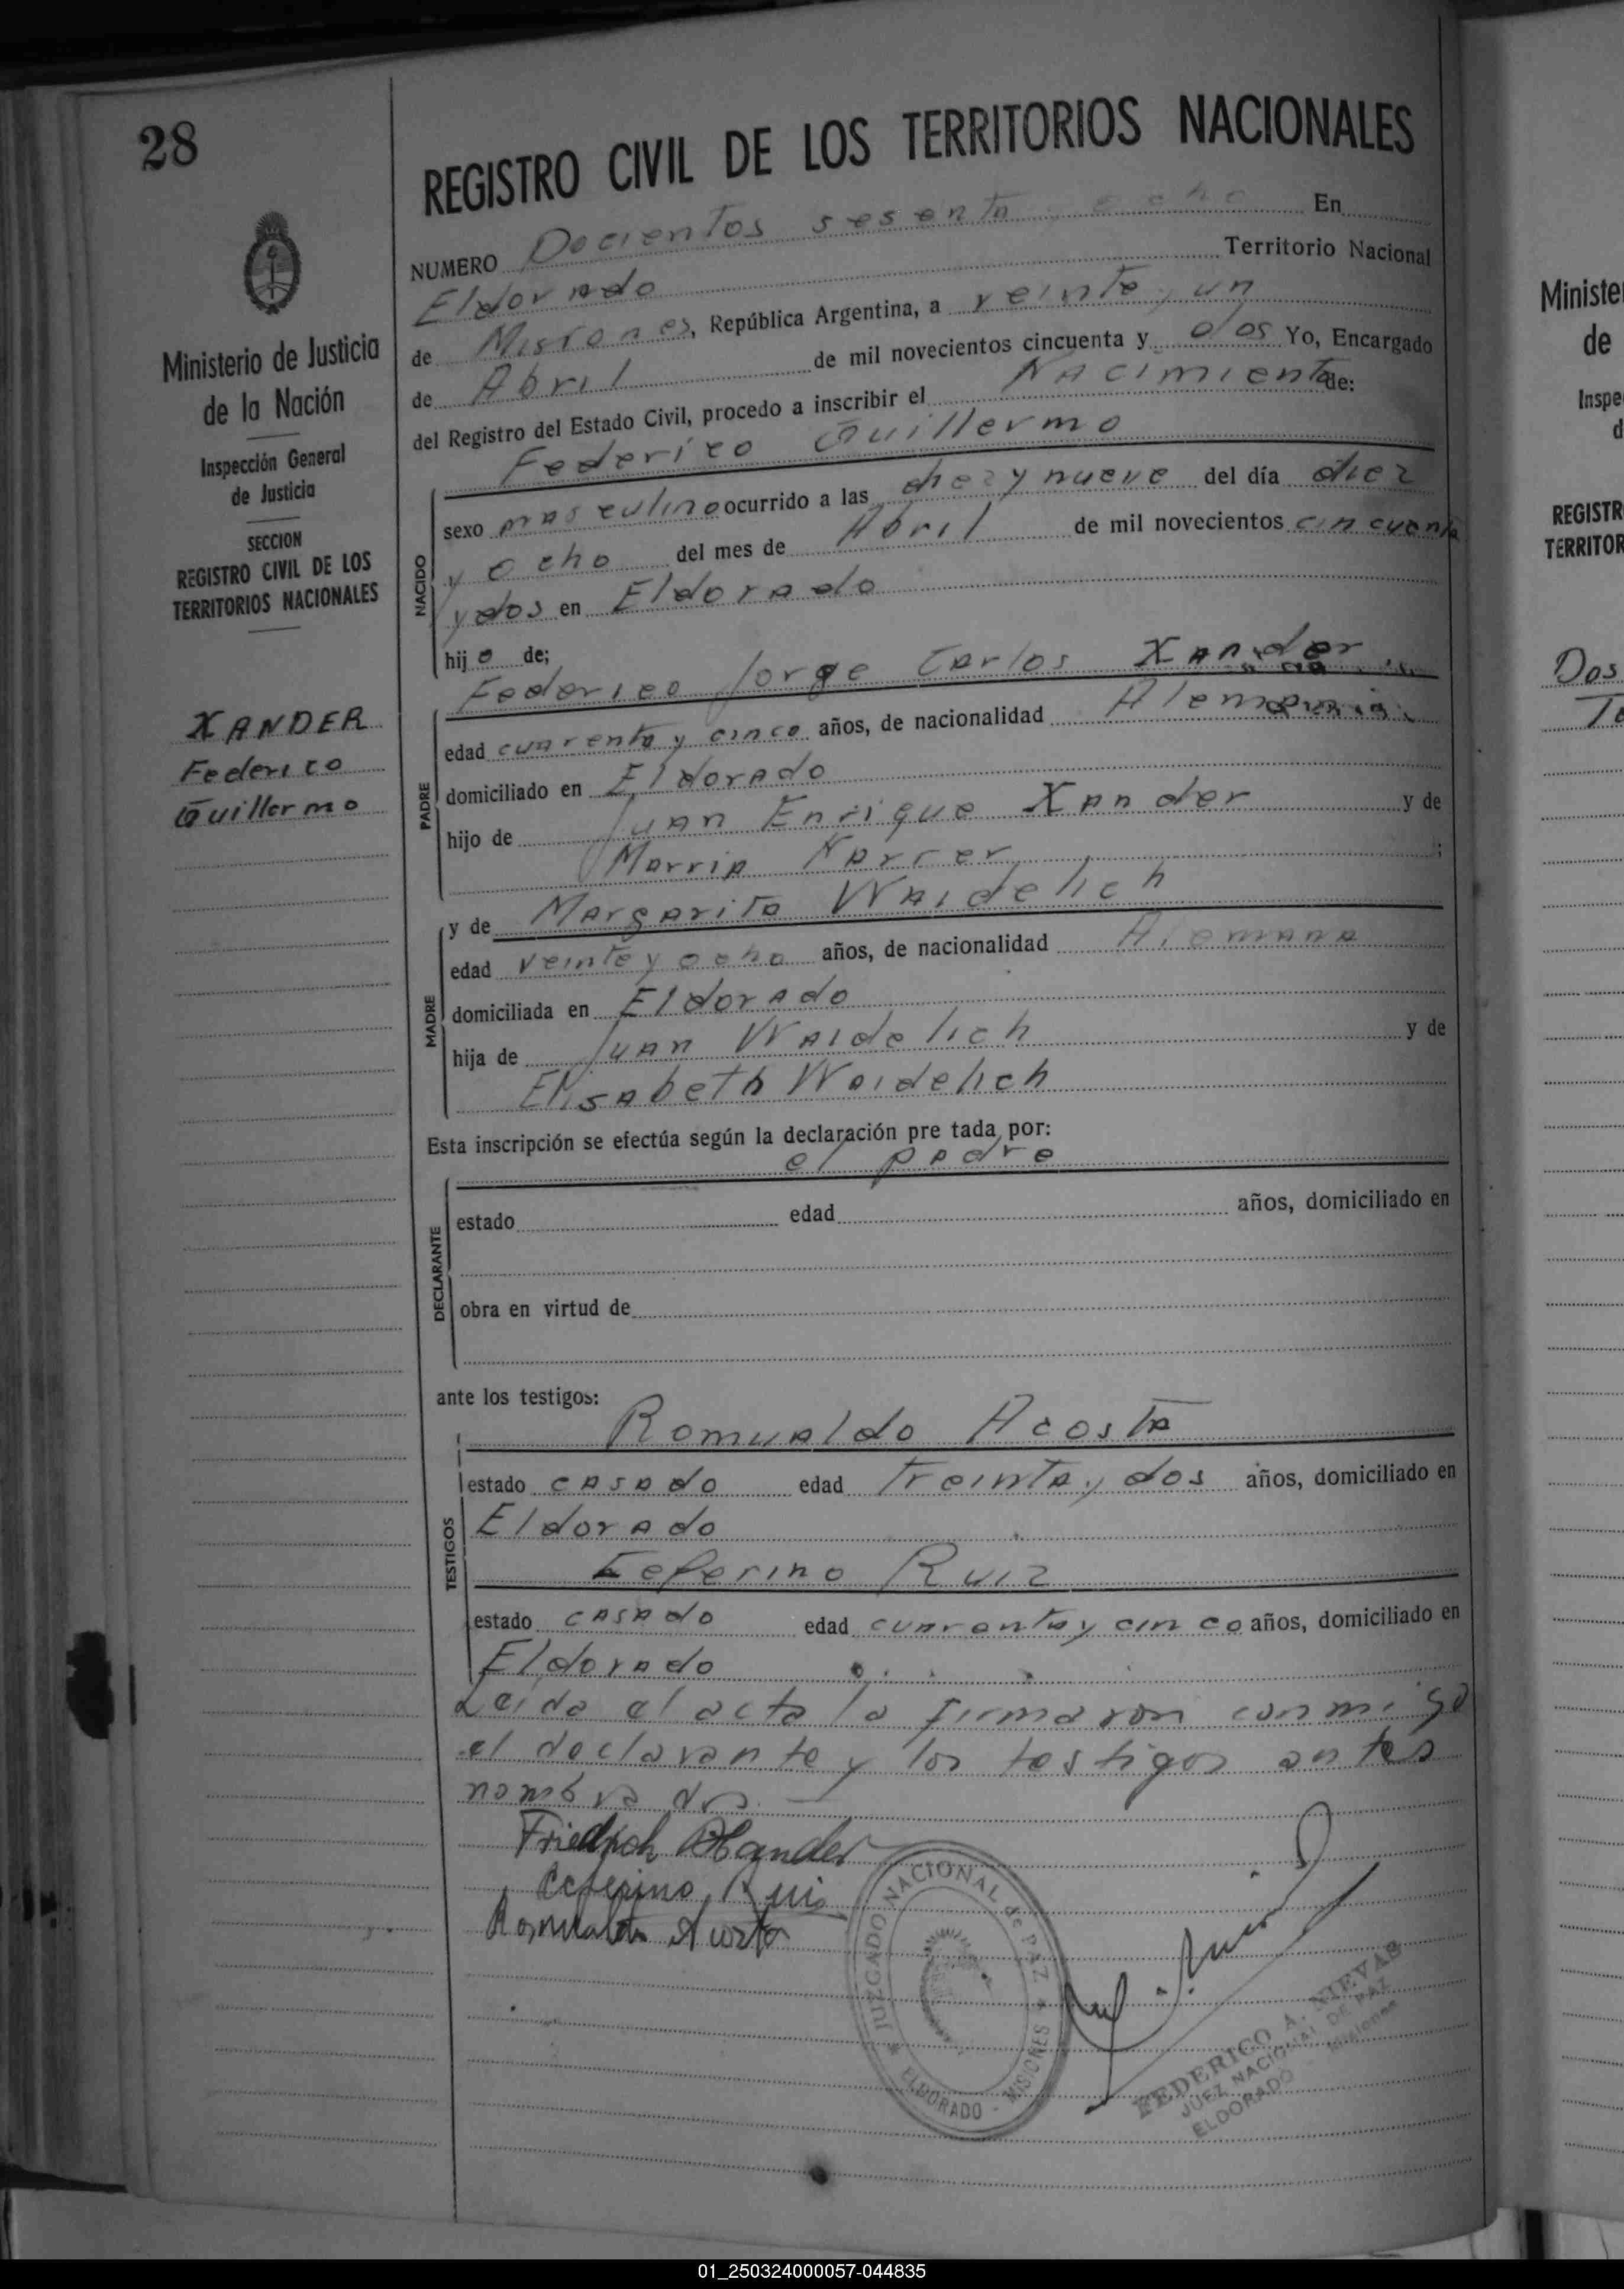 28
REGISTRO CIVIL DE LOS TERRITORIOS NACIONALES
Ministerio de Justicia
de la Nación
Inspección General
de Justicia
SECCION
REGISTRO CIVIL DE LOS
TERRITORIOS NACIONALES
XANDER
Federico
Guillermo
NUMERO Docientos sesenta y ocho En
Eldorado Territorio Nacional
de Misiones, República Argentina, a veinte y un
de Abril de mil novecientos cincuenta y dos Yo, Encargado
del Registro del Estado Civil, procedo a inscribir el Nacimiento de:
Federico Guillermo
NACIDO
sexo masculino ocurrido a las diez y nueve del día diez
y ocho del mes de Abril de mil novecientos cincuenta
y dos en Eldorado
hijo de;
Federico Jorge Carlos Xander
PADRE
edad cuarenta y cinco años, de nacionalidad
domiciliado en Eldorado
hijo de Juan Enrique Xander y de
Marria Karrer ;
y de Margarita Waidelich
MADRE
edad veinte y ocho años, de nacionalidad Alemana
domiciliada en Eldorado
hija de Juan Waidelich y de
Elisabeth Waidelich
Esta inscripción se efectúa según la declaración pre tada por:
el padre
DECLARANTE
estado edad años, domiciliado en
obra en virtud de
ante los testigos:
Romualdo Acosta
TESTIGOS
estado casado edad treinta y dos años, domiciliado en
Eldorado
Ceferino Ruiz
estado casado edad cuarenta y cinco años, domiciliado en
Eldorado
Leída el acta la firmaron conmigo
el declarante y los testigos antes
nombrados.
Friedrich Xander
Ceferino Ruis
Romualdo Acosta
JUZGADO NACIONAL de PAZ
ELDORADO - MISIONES
FEDERICO A. NIEVAS
JUEZ NACIONAL DE PAZ
ELDORADO - Misiones
Ministe
de
Inspe
d
REGISTR
TERRITOR
Dos
01_250324000057-044835